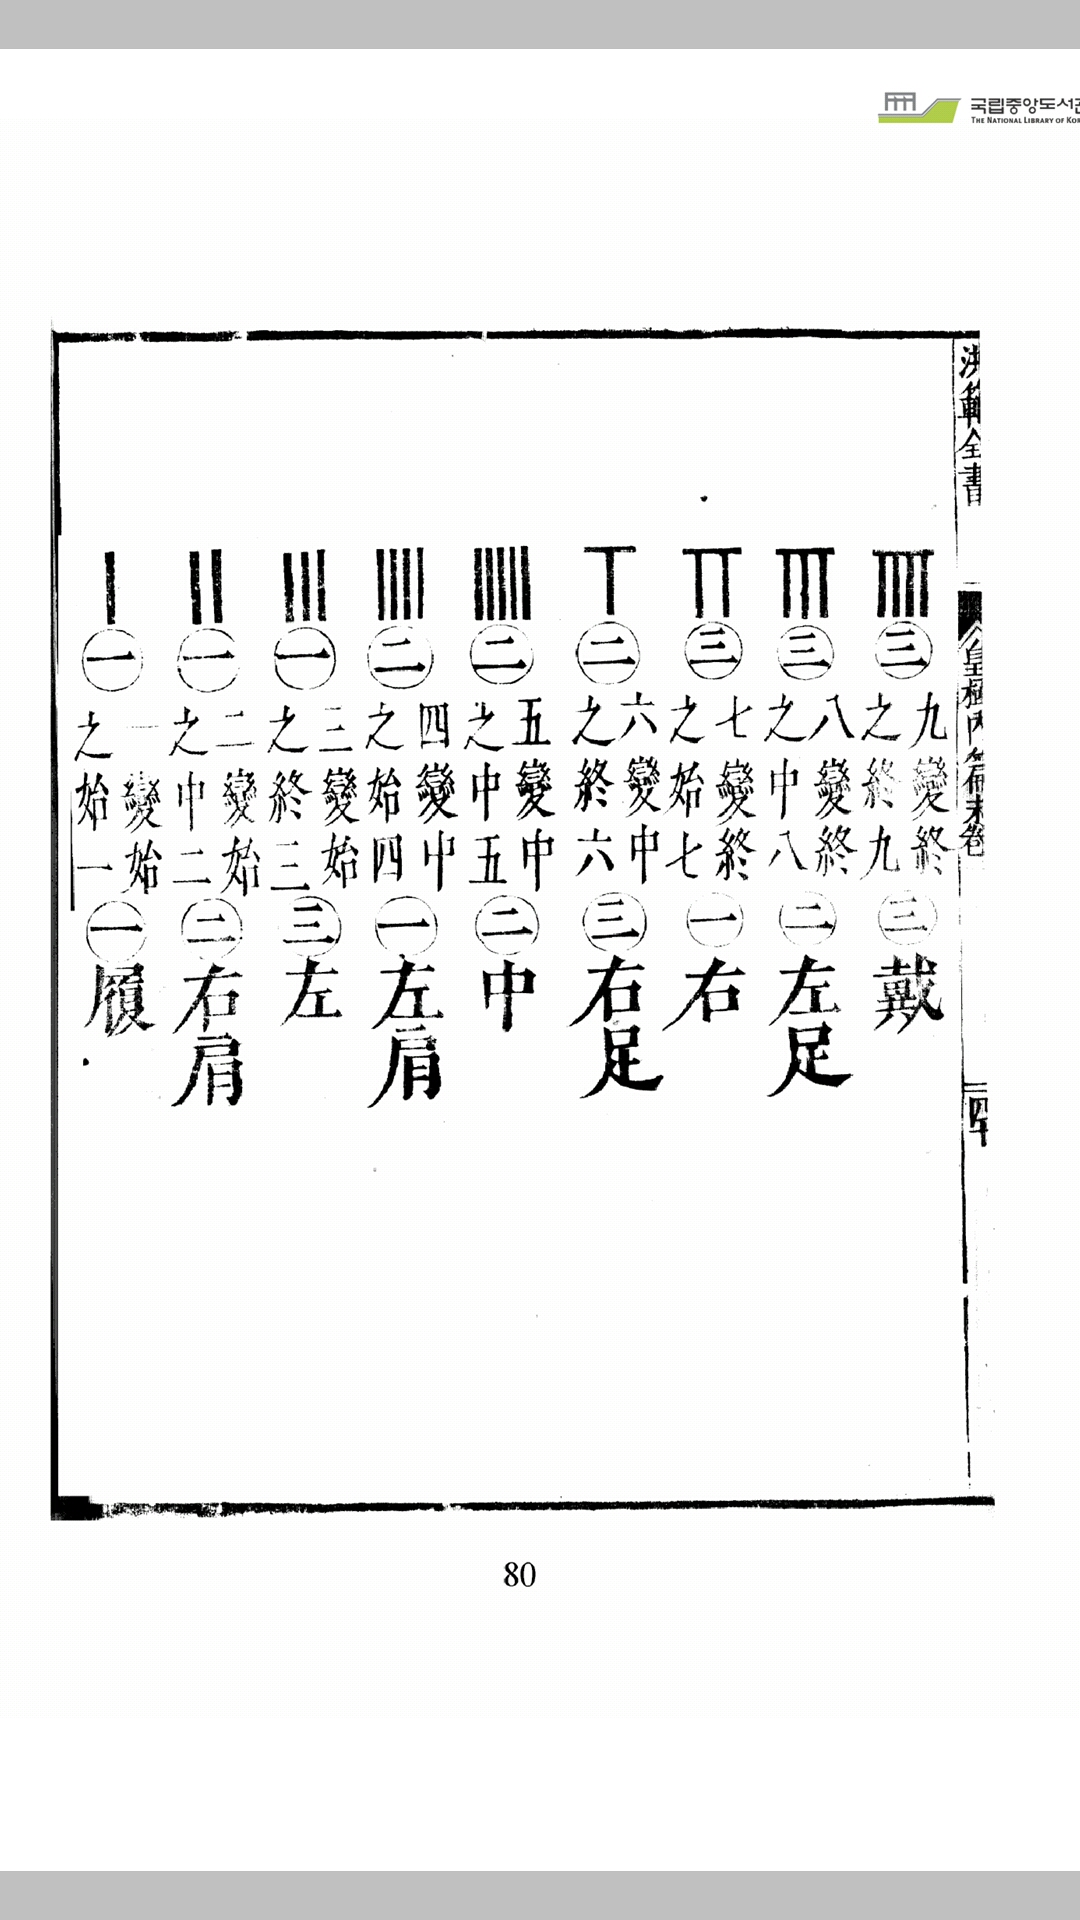 국립중앙도서관
THE NATIONAL LIBRARY OF KOR
洪範全書
皇極內篇末卷
四十
㊂九變終之終九㊂戴
㊂八變終之中八㊁左足
㊂七變終之始七㊀右
㊁六變中之終六㊂右足
㊁五變中之中五㊁中
㊁四變中之始四㊀左肩
㊀三變始之終三㊂左
㊀二變始之中二㊁右肩
㊀一變始之始一㊀履
80